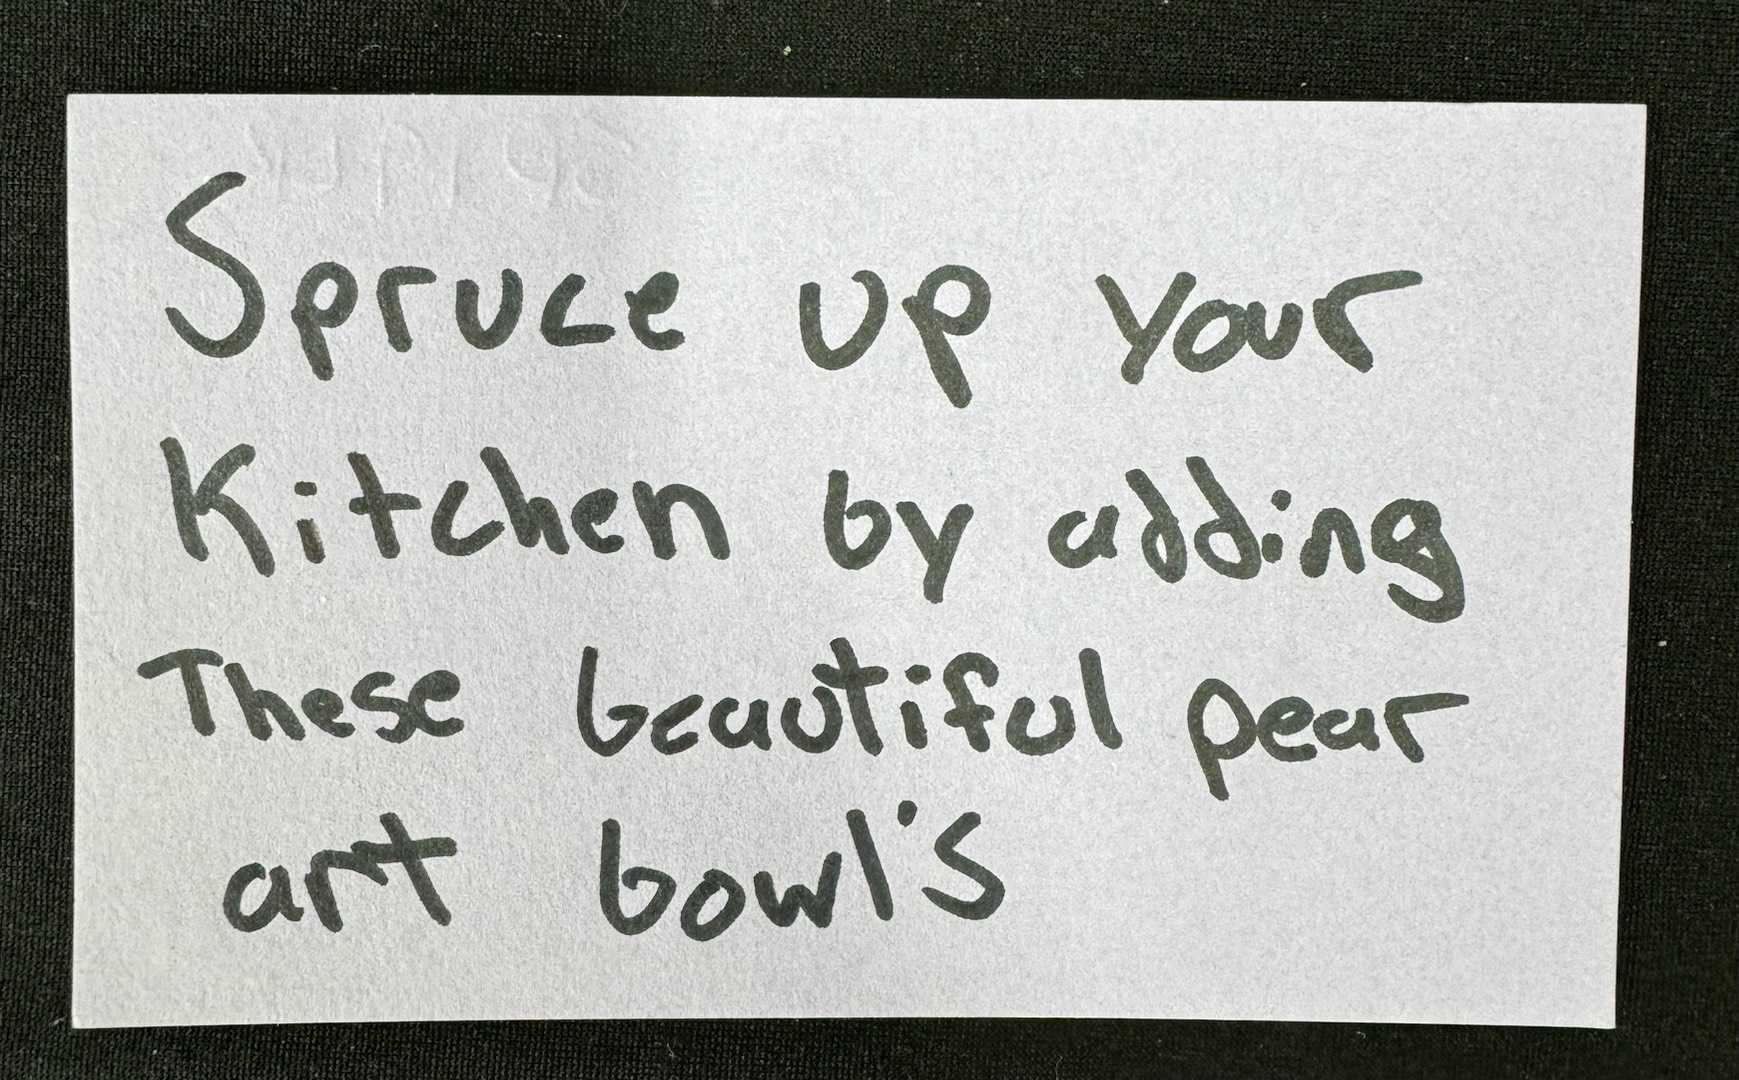 Spruce up your
Kitchen by adding
These beautiful pear
art bowl's